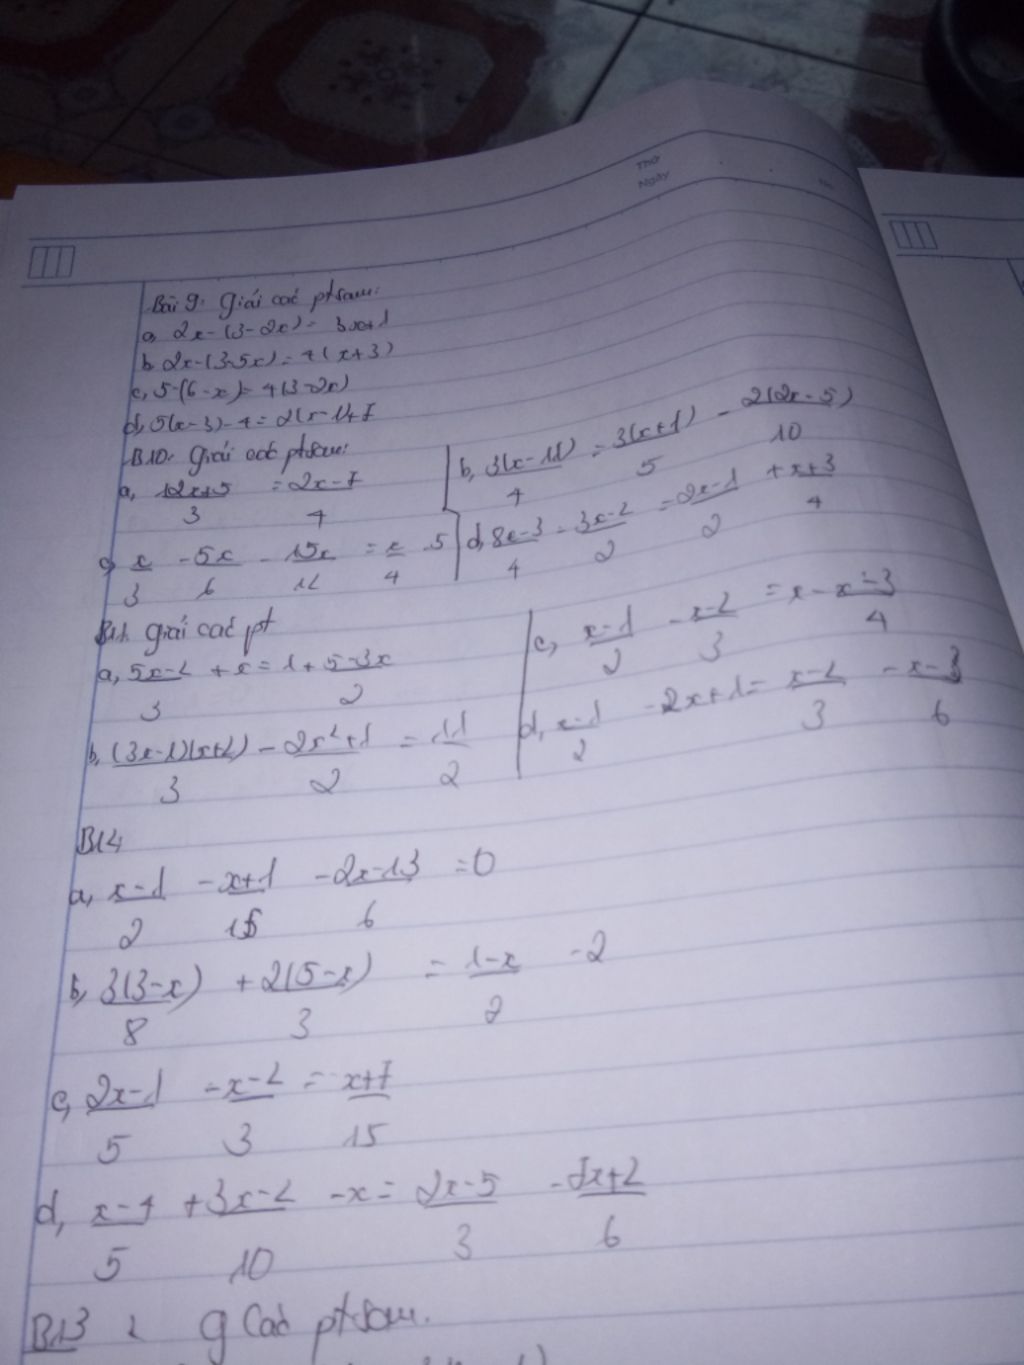 Thứ
Ngày
Bài 9: Giải các pt sau:
a, 2x-(3-2x)= 3x+1
b, 2x-(3-5x)=4(x+3)
c, 5-(6-x)=4(3-2x)
d, 5(x-3)-4=2(x-1)+7
B10: Giải các pt sau:
a, 12x+5/3 = 2x-7/4
b, 3(x-11)/4 = 3(x+1)/5 - 2(2x-5)/10
c, x/3 - 5x/6 - 15x/12 = x/4 - 5
d, 8x-3/4 - 3x-2/2 = 2x-1/2 + x+3/4
B11: Giải các pt
a, 5x-2/3 + x = 1 + 5-3x/2
b, (3x-1)(x+2)/3 - 2x²+1/2 = 11/2
c, x-1/2 - x-2/3 = x - x-3/4
d, x-1/2 - 2x+1 = x-2/3 - x-3/6
B14
a, x-1/2 - x+1/15 - 2x-13/6 = 0
b, 3(3-x)/8 + 2(5-x)/3 = 1-x/2 - 2
c, 2x-1/5 - x-2/3 = x+7/15
d, x-4/5 + 3x-2/10 - x = 2x-5/3 - 7x+2/6
B13: g các pt sau.